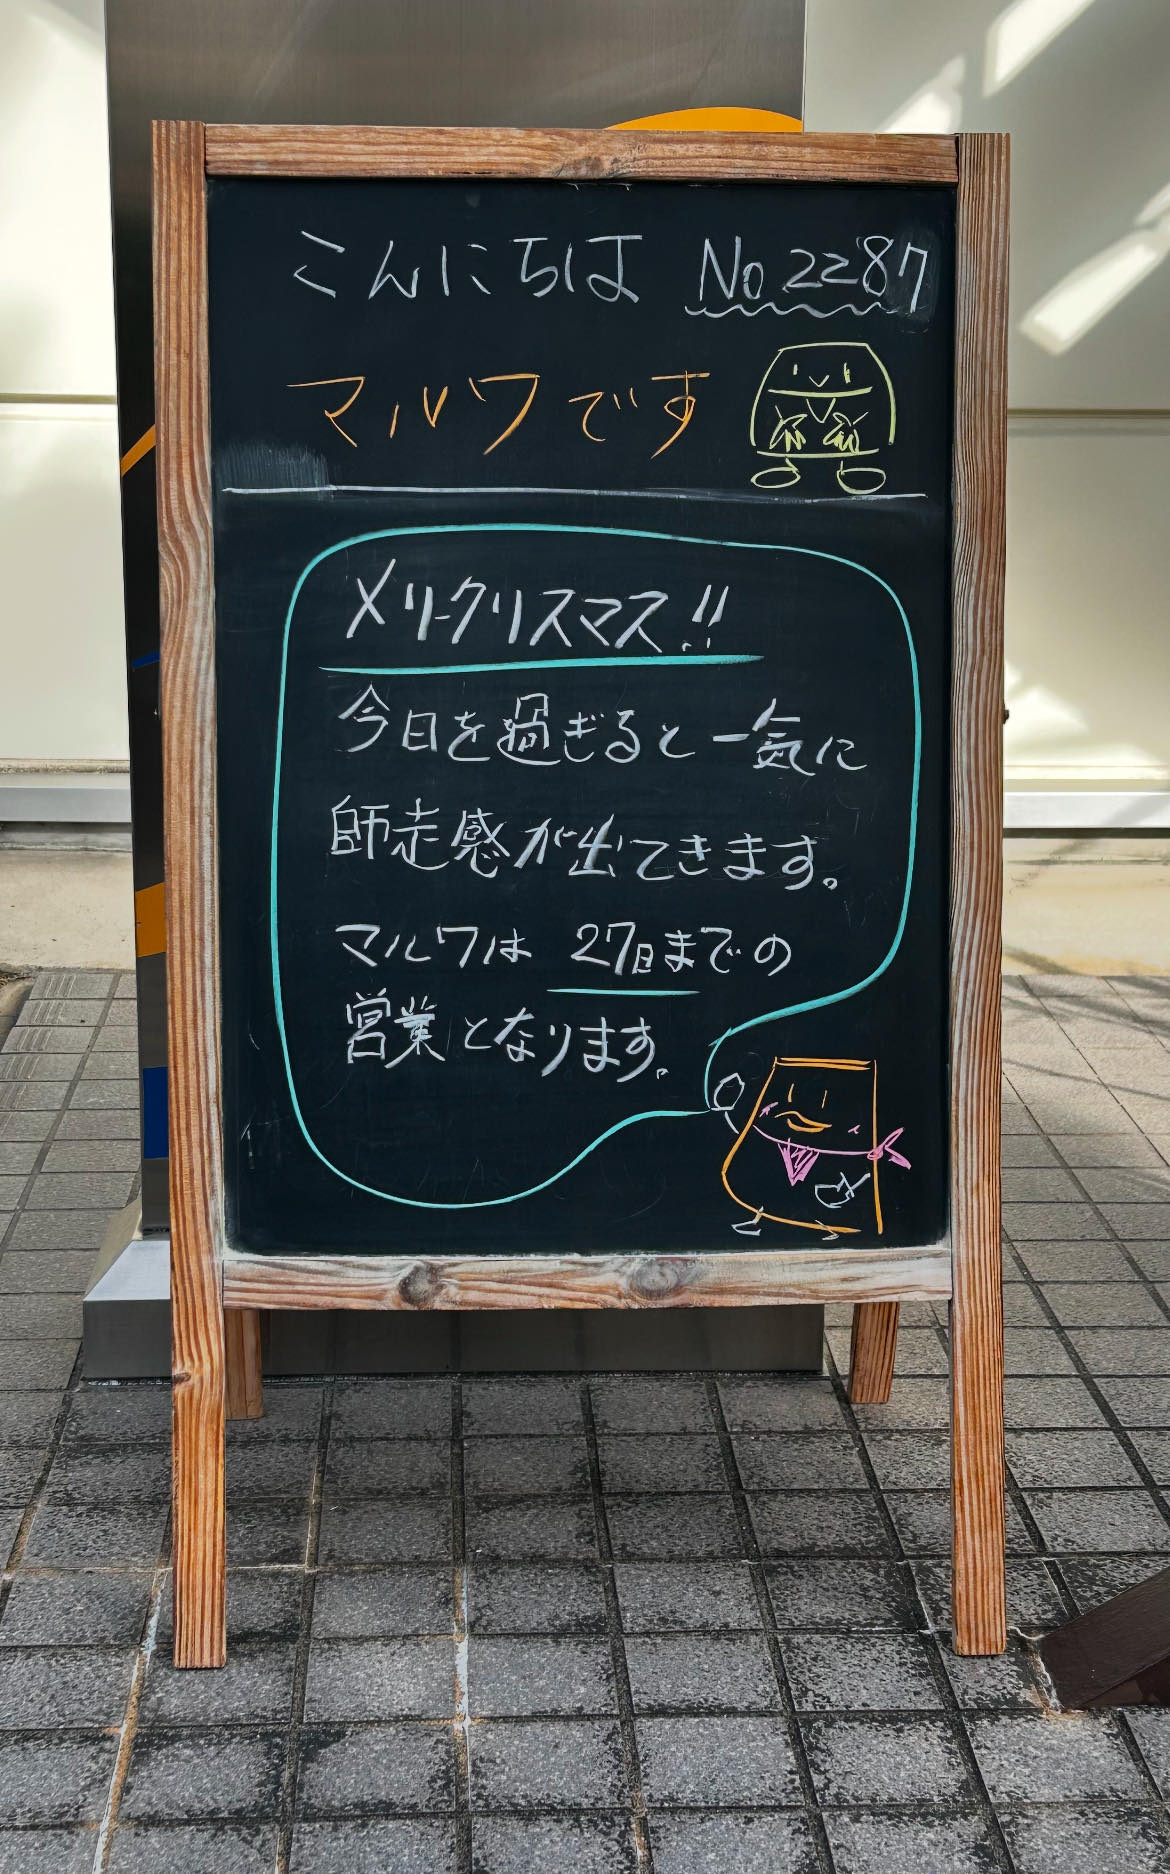 こんにちは No.2287
マルワです
メリークリスマス!!
今日を過ぎると一気に
師走感が出てきます。
マルワは 27日までの
営業となります。